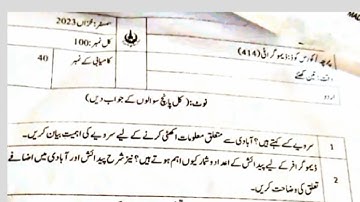 سمسٹر: خزاں 2023
پرچہ: اکنامکس کوڈ: ڈیموگرافی (414)
کل نمبر: 100
وقت: تین گھنٹے
کامیابی کے نمبر 40
نوٹ: (کل پانچ سوالوں کے جواب دیں)
1 سروے کسے کہتے ہیں؟ آبادی سے متعلق معلومات اکٹھی کرنے کے لیے سروے کی اہمیت بیان کریں۔
2 ڈیموگرافر کے لیے پیدائش کے اعداد و شمار کیوں اہم ہوتے ہیں؟ نیز شرح پیدائش اور آبادی میں اضافے
تعلق کی وضاحت کریں۔